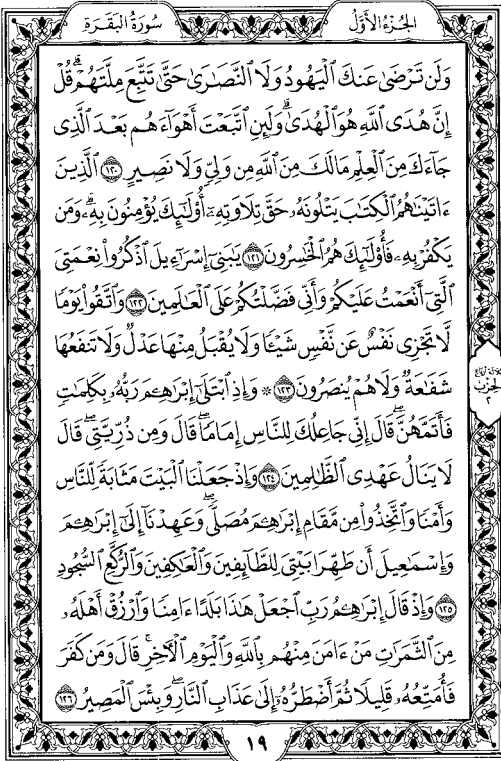 الجُزْءُ الأَوَّلُ سُورَةُ البَقَرَةِ
وَلَن تَرْضَىٰ عَنكَ الْيَهُودُ وَلَا النَّصَارَىٰ حَتَّىٰ تَتَّبِعَ مِلَّتَهُمْ ۗ قُلْ
إِنَّ هُدَى اللَّهِ هُوَ الْهُدَىٰ ۗ وَلَئِنِ اتَّبَعْتَ أَهْوَاءَهُم بَعْدَ الَّذِي
جَاءَكَ مِنَ الْعِلْمِ مَا لَكَ مِنَ اللَّهِ مِن وَلِيٍّ وَلَا نَصِيرٍ ١٢٠ الَّذِينَ
ءَاتَيْنَاهُمُ الْكِتَابَ يَتْلُونَهُ حَقَّ تِلَاوَتِهِ أُولَٰئِكَ يُؤْمِنُونَ بِهِ ۗ وَمَن
يَكْفُرْ بِهِ فَأُولَٰئِكَ هُمُ الْخَاسِرُونَ ١٢١ يَٰبَنِي إِسْرَٰءِيلَ اذْكُرُوا نِعْمَتِيَ
الَّتِي أَنْعَمْتُ عَلَيْكُمْ وَأَنِّي فَضَّلْتُكُمْ عَلَى الْعَالَمِينَ ١٢٢ وَاتَّقُوا يَوْمًا
لَّا تَجْزِي نَفْسٌ عَن نَّفْسٍ شَيْئًا وَلَا يُقْبَلُ مِنْهَا عَدْلٌ وَلَا تَنفَعُهَا
شَفَٰعَةٌ وَلَا هُمْ يُنصَرُونَ ١٢٣ ۞ وَإِذِ ابْتَلَىٰ إِبْرَٰهِـۧمَ رَبُّهُ بِكَلِمَٰتٍ
فَأَتَمَّهُنَّ ۖ قَالَ إِنِّي جَاعِلُكَ لِلنَّاسِ إِمَامًا ۖ قَالَ وَمِن ذُرِّيَّتِي ۖ قَالَ
لَا يَنَالُ عَهْدِي الظَّالِمِينَ ١٢٤ وَإِذْ جَعَلْنَا الْبَيْتَ مَثَابَةً لِّلنَّاسِ
وَأَمْنًا وَاتَّخِذُوا مِن مَّقَامِ إِبْرَٰهِـۧمَ مُصَلًّى ۖ وَعَهِدْنَا إِلَىٰ إِبْرَٰهِـۧمَ
وَإِسْمَٰعِيلَ أَن طَهِّرَا بَيْتِيَ لِلطَّائِفِينَ وَالْعَاكِفِينَ وَالرُّكَّعِ السُّجُودِ
١٢٥ وَإِذْ قَالَ إِبْرَٰهِـۧمُ رَبِّ اجْعَلْ هَٰذَا بَلَدًا ءَامِنًا وَارْزُقْ أَهْلَهُ
مِنَ الثَّمَرَٰتِ مَنْ ءَامَنَ مِنْهُم بِاللَّهِ وَالْيَوْمِ الْءَاخِرِ ۖ قَالَ وَمَن كَفَرَ
فَأُمَتِّعُهُ قَلِيلًا ثُمَّ أَضْطَرُّهُ إِلَىٰ عَذَابِ النَّارِ ۖ وَبِئْسَ الْمَصِيرُ ١٢٦
ثلاثة أرباع
الحزب
٢
١٩